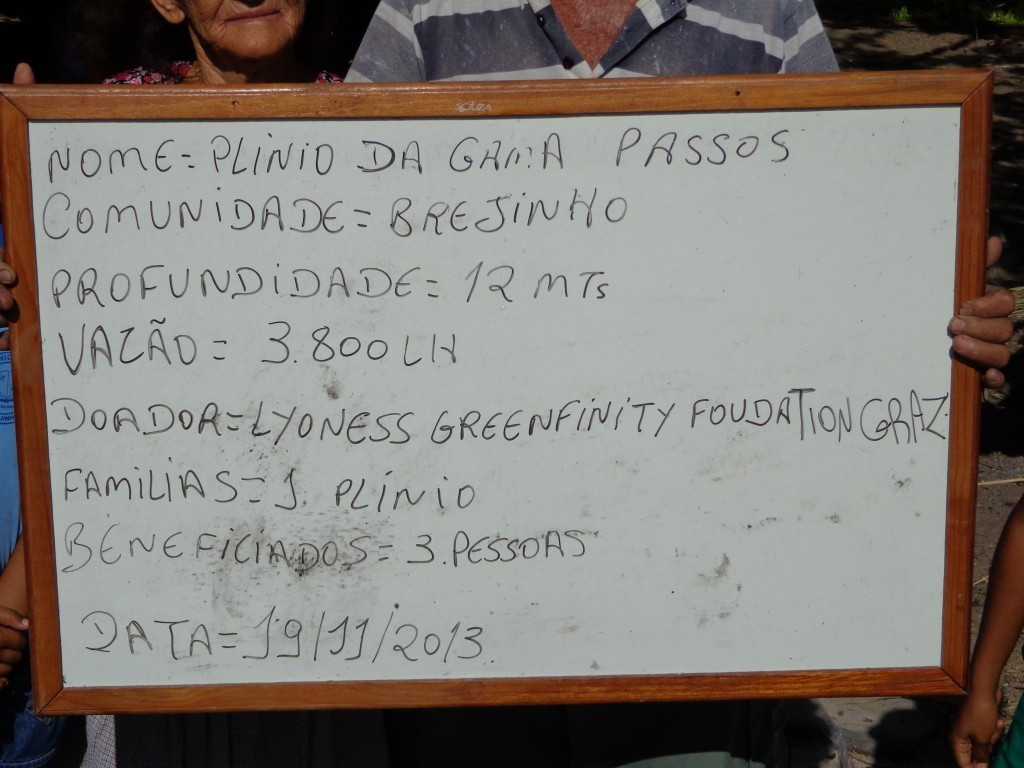 SOUZA
NOME = PLINIO DA GAMA PASSOS
COMUNIDADE = BREJINHO
PROFUNDIDADE = 12 MTs
VAZÃO = 3.800 LH
DOADOR = LYONESS GREENFINITY FOUDATION GRAZ.
FAMILIAS = 1. PLINIO
BENEFICIADOS = 3. PESSOAS
DATA = 19/11/2013.